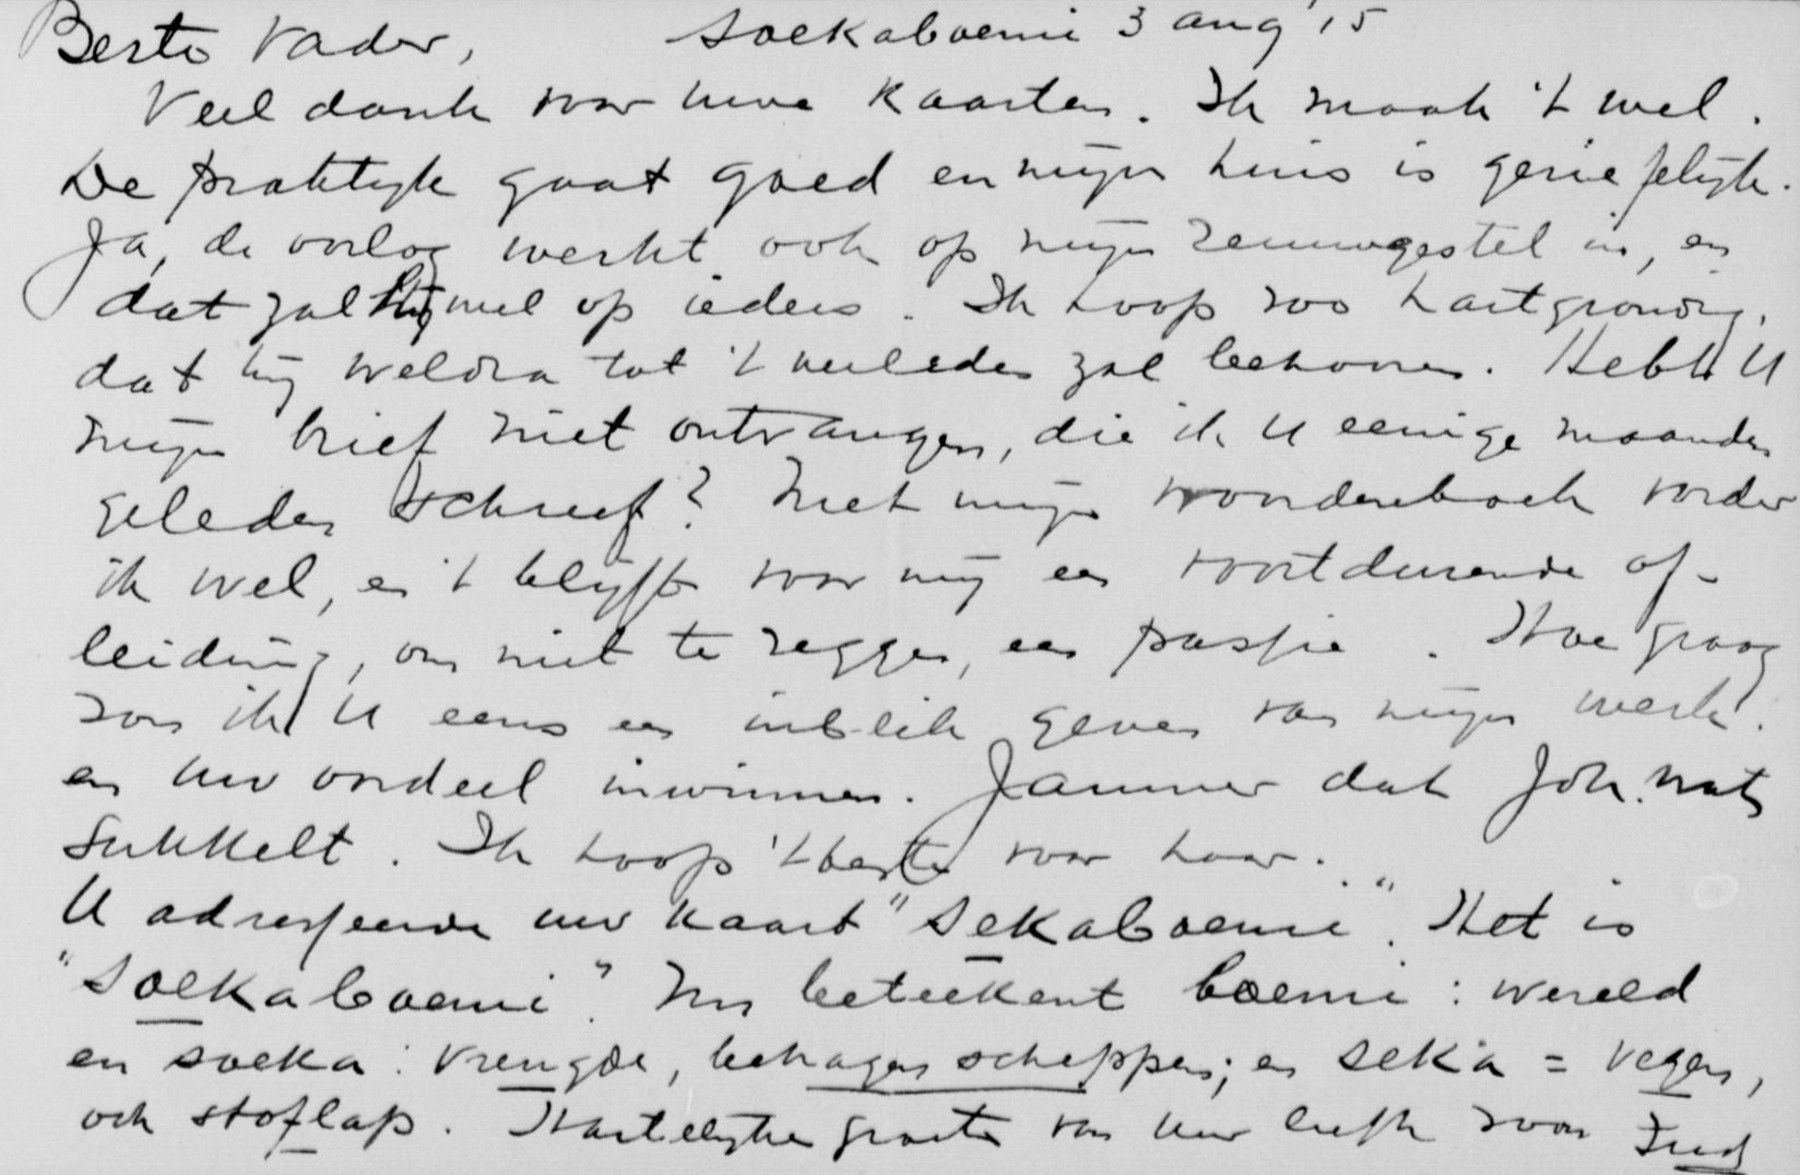 Beste Vader, Soekaboemi 3 aug '15
Veel dank voor uwe kaarten. Ik maak 't wel.
De praktijk gaat goed en mijn huis is geriefelijk.
Ja, de oorlog werkt ook op mijn zenuwgestel in, en
dat zal hij wel op ieders. Ik hoop zoo hartgrondig,
dat hij weldra tot 't verleden zal behooren. Hebt U
mijn brief niet ontvangen, die ik U eenige maanden
geleden schreef? Met mijn woordenboek vorder
ik wel, en 't blijft voor mij een voortdurende af-
leiding, om niet te zeggen, een passie. Hoe graag
zou ik U eens een inblik geven van mijn werk.
en uw oordeel inwinnen. Jammer dat Joh. wat
sukkelt. Ik hoop 't beste voor haar.
U adresseerde uw kaart "Sekaboemi". Het is
"Soekaboemi". Nu beteekent boemi: wereld
en soeka: vreugde, behagen scheppen; en seka = vegen,
ook stoflap. Hartelijke groete van uw liefh zoon